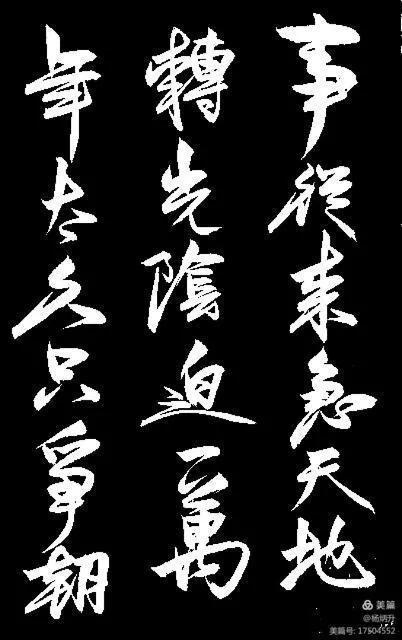 事從来急天地
轉光陰迫一萬
年太久只爭朝
美篇
@杨炳升
美篇号: 17504552